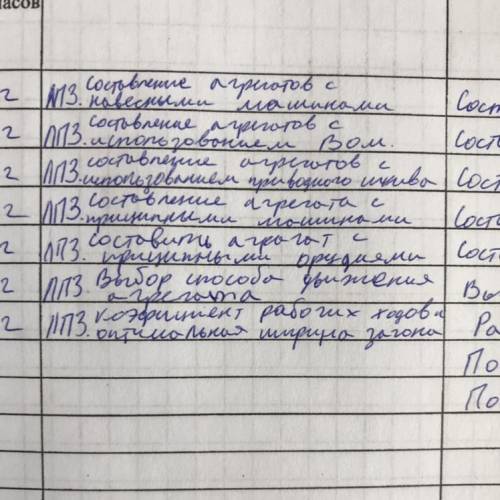 часов
2 ЛПЗ. Составление агрегатов с
навесными машинами Сост
2 ЛПЗ. составление агрегатов с
использованием Вом. Соста
2 ЛПЗ. составление агрегатов с
использованием приводного шкива Сост
2 ЛПЗ. Составление агрегата с
прицепными машинами Соста
2 ЛПЗ. Составить агрегат с
прицепными орудиями Соста
2 ЛПЗ. Выбор способа движения
агрегата Вы
2 ЛПЗ. Коэфициент рабочих ходов и
оптимальная ширина загона Ра
По
По